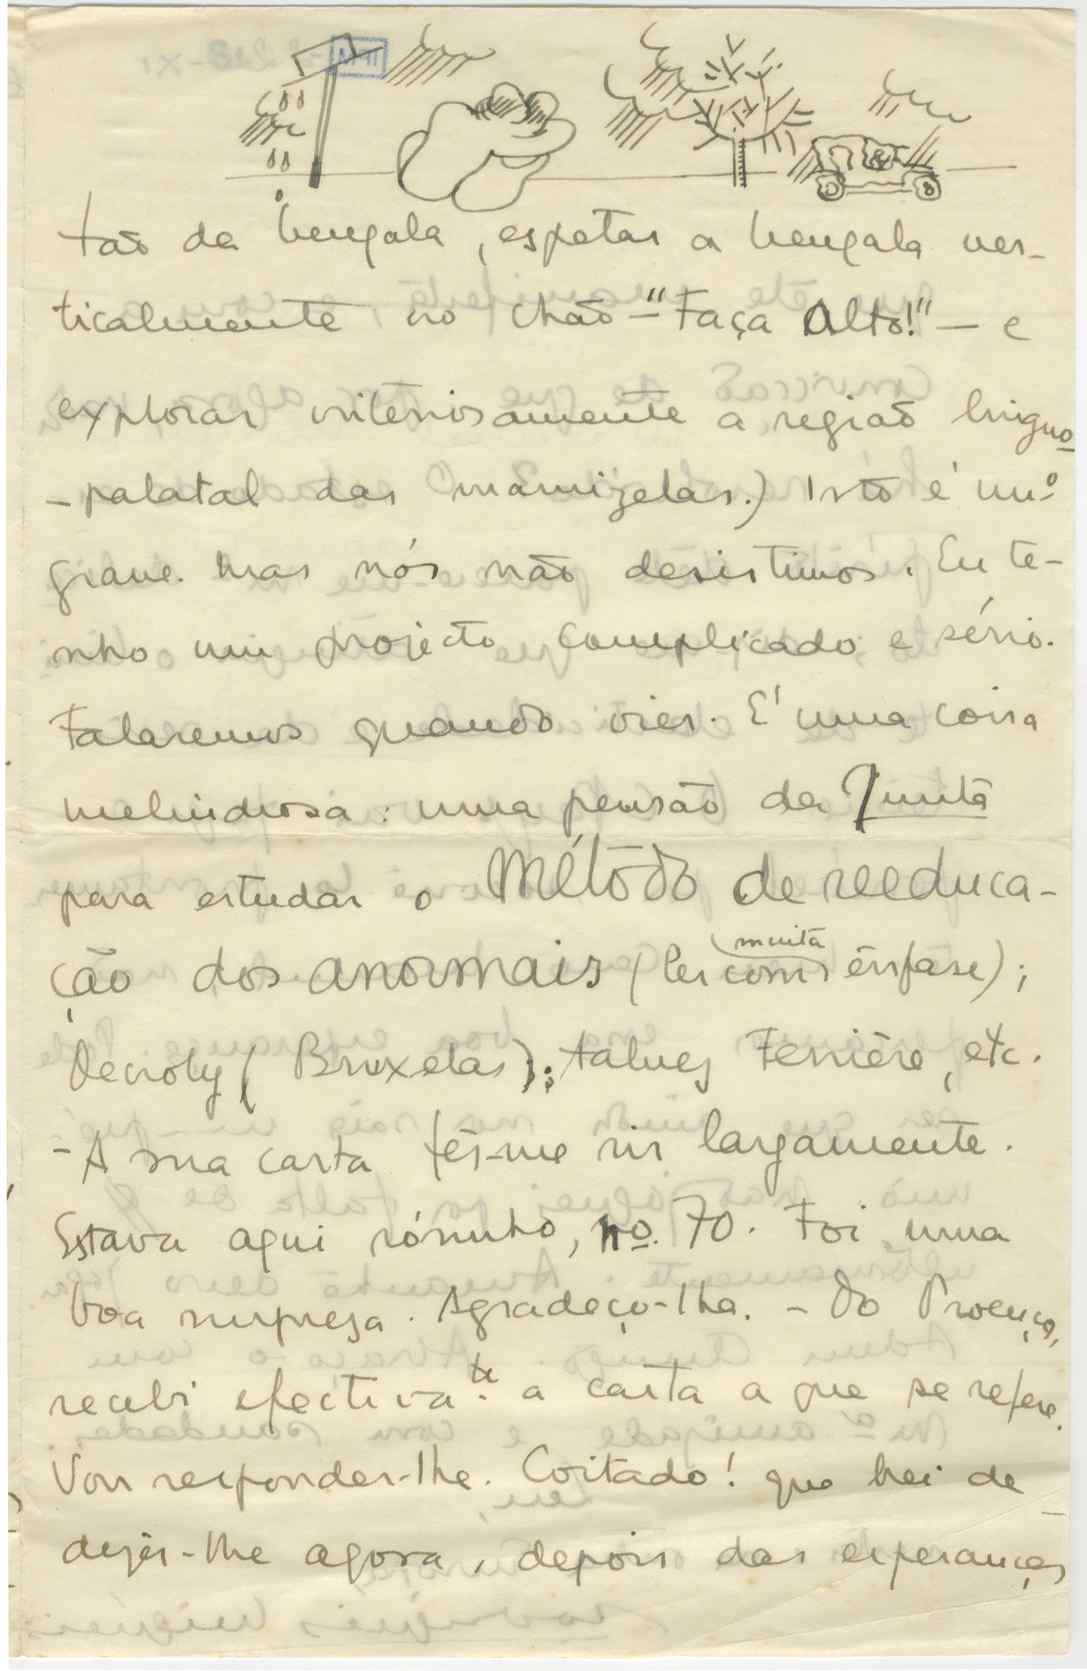 tão da bengala, espetar a bengala ver-
ticalmente no chão — "Faça Alto!" — e
explorar criteriosamente a região linguo
-palatal das mamizelas.) Isto é mu.º
grave. Mas nós não desistimos. Eu te-
nho um projecto complicado e sério.
Falaremos quando vier. É uma coisa
melindrosa: uma pensão da Junta
para estudar o Método de reeduca-
ção dos anormais (ler com muita ênfase);
Decroly (Bruxelas); talvez Ferrière, etc.
- A sua carta fês-me rir largamente.
Estava aqui sósinho, no 70. Foi uma
boa surpresa. Agradeço-lha. - Do Proença,
recebi efectiva.te a carta a que se refere.
Vou responder-lhe. Coitado! que hei de
dizer-lhe agora, depois das esperanças